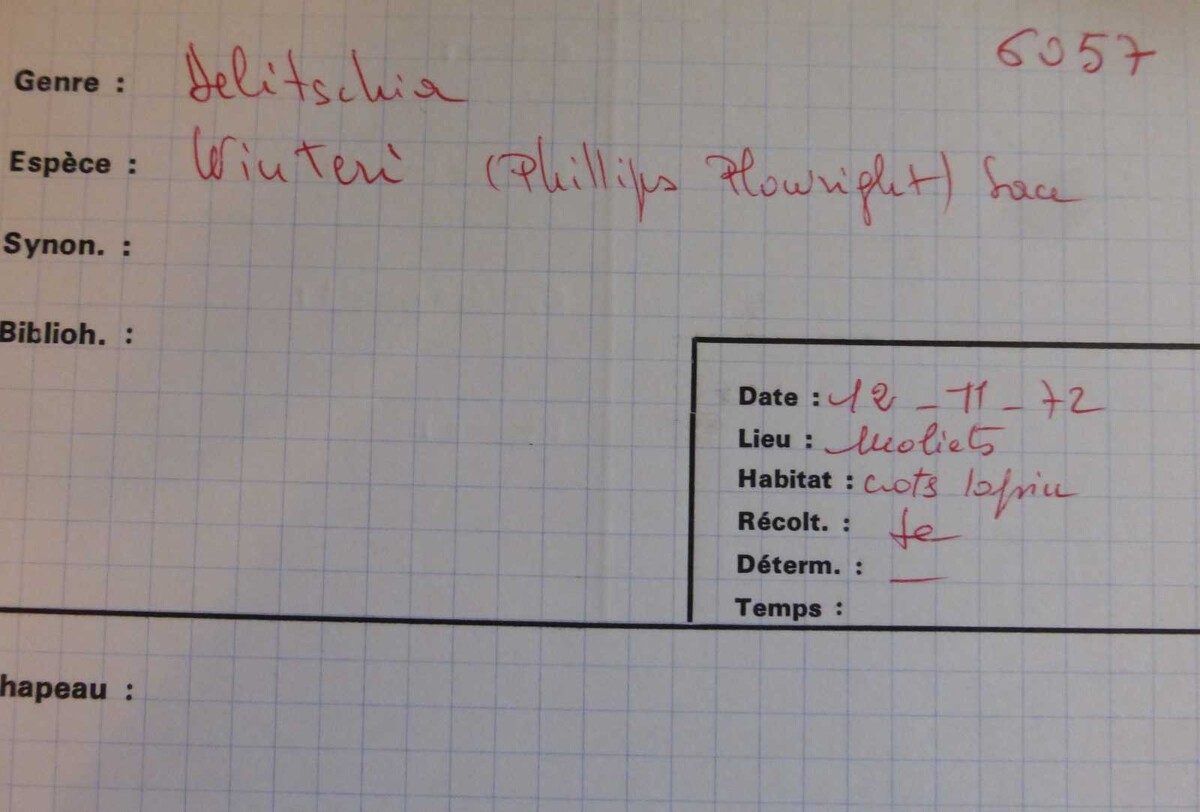 6057
Genre : Delitschia
Espèce : Winteri (Phillips Plowright) Sacc
Synon. :
Biblioh. :
Date : 12 - 11 - 72
Lieu : Moliets
Habitat : crots lapin
Récolt. :
Déterm. : —
Temps :
hapeau :